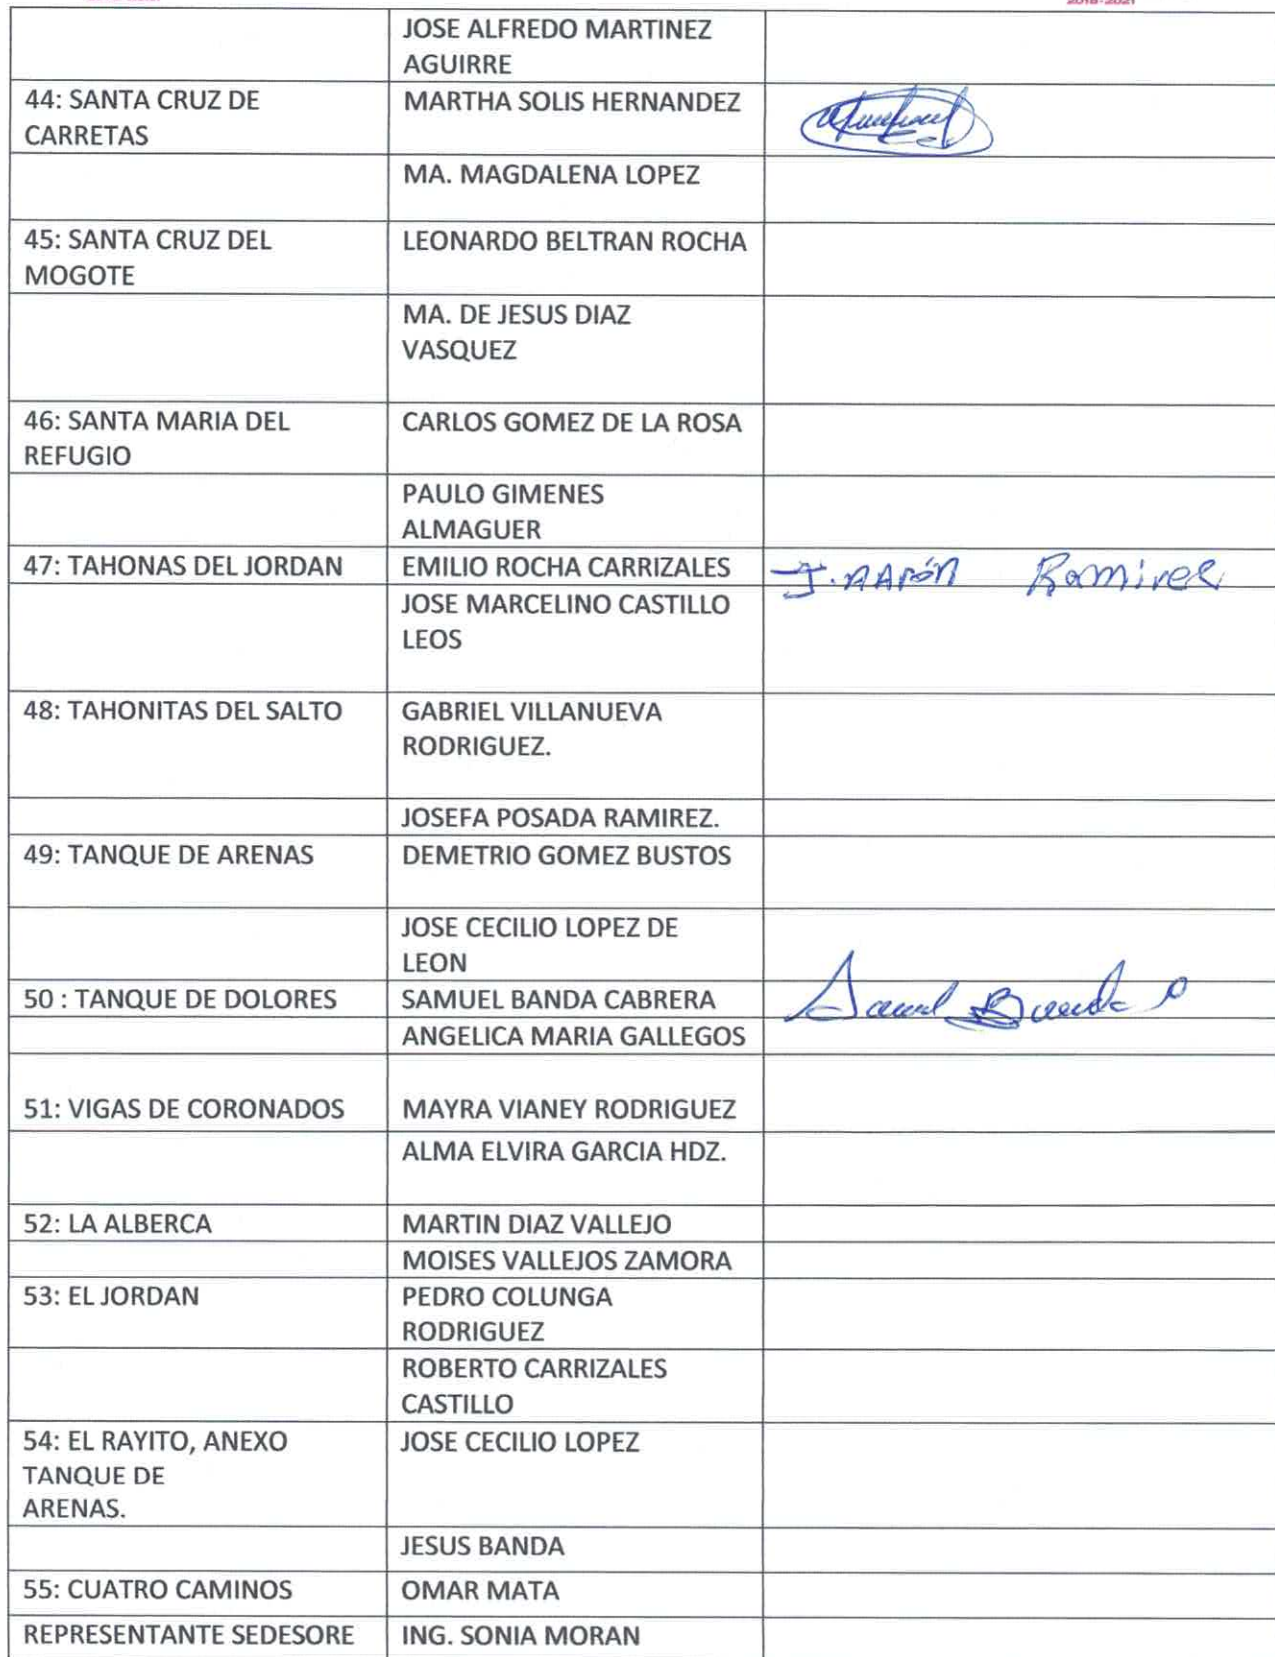 2018-2021
JOSE ALFREDO MARTINEZ
AGUIRRE
44: SANTA CRUZ DE
CARRETAS
MARTHA SOLIS HERNANDEZ
MA. MAGDALENA LOPEZ
45: SANTA CRUZ DEL
MOGOTE
LEONARDO BELTRAN ROCHA
MA. DE JESUS DIAZ
VASQUEZ
46: SANTA MARIA DEL
REFUGIO
CARLOS GOMEZ DE LA ROSA
PAULO GIMENES
ALMAGUER
47: TAHONAS DEL JORDAN
EMILIO ROCHA CARRIZALES
J. AArón Ramirez
JOSE MARCELINO CASTILLO
LEOS
48: TAHONITAS DEL SALTO
GABRIEL VILLANUEVA
RODRIGUEZ.
JOSEFA POSADA RAMIREZ.
49: TANQUE DE ARENAS
DEMETRIO GOMEZ BUSTOS
JOSE CECILIO LOPEZ DE
LEON
50 : TANQUE DE DOLORES
SAMUEL BANDA CABRERA
ANGELICA MARIA GALLEGOS
51: VIGAS DE CORONADOS
MAYRA VIANEY RODRIGUEZ
ALMA ELVIRA GARCIA HDZ.
52: LA ALBERCA
MARTIN DIAZ VALLEJO
MOISES VALLEJOS ZAMORA
53: EL JORDAN
PEDRO COLUNGA
RODRIGUEZ
ROBERTO CARRIZALES
CASTILLO
54: EL RAYITO, ANEXO
TANQUE DE
ARENAS.
JOSE CECILIO LOPEZ
JESUS BANDA
55: CUATRO CAMINOS
OMAR MATA
REPRESENTANTE SEDESORE
ING. SONIA MORAN